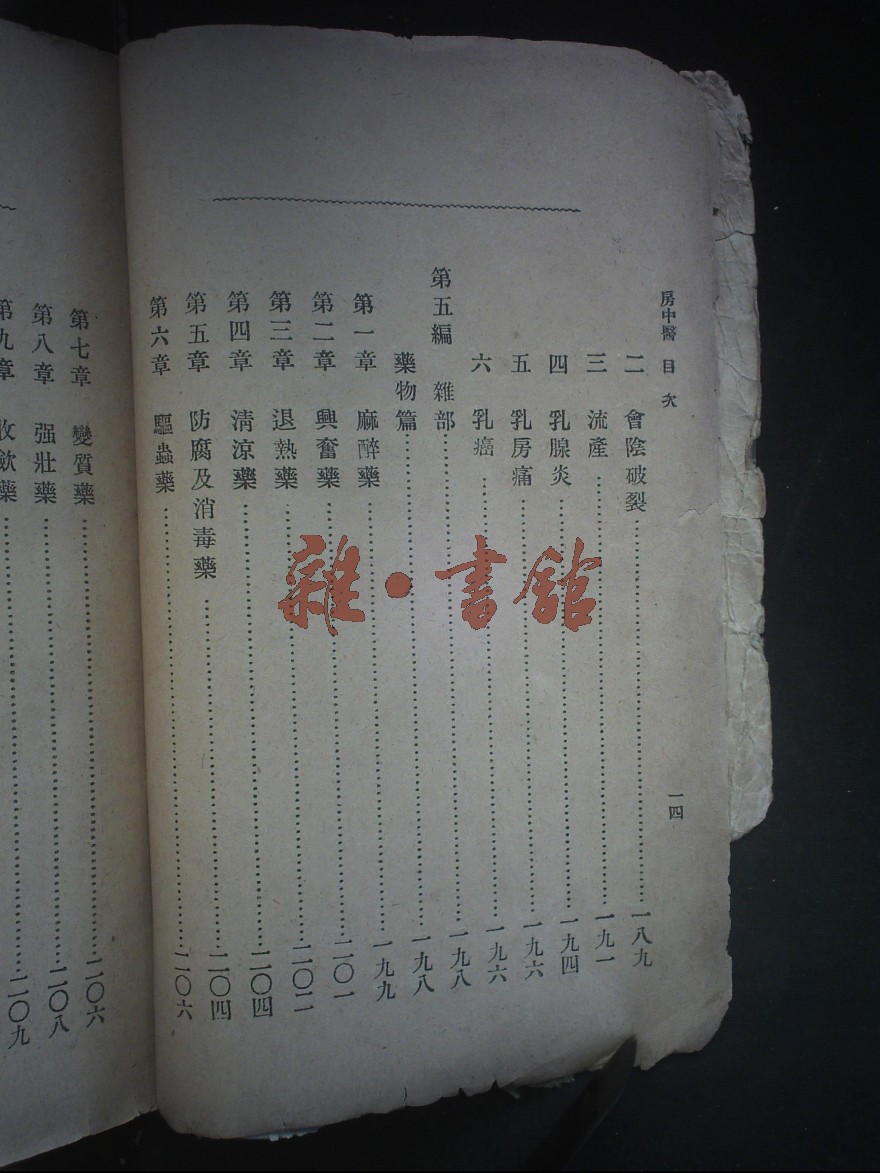 房中醫 目次 一四
二 會陰破裂 一八九
三 流產 一九一
四 乳腺炎 一九四
五 乳房痛 一九六
六 乳癌 一九六
第五編 雜部 一九八
藥物篇 一九八
第一章 麻醉藥 一九九
第二章 興奮藥 二〇一
第三章 退熱藥 二〇二
第四章 清涼藥 二〇四
第五章 防腐及消毒藥 二〇四
第六章 驅蟲藥 二〇六
第七章 變質藥 二〇六
第八章 强壯藥 二〇八
第九章 收斂藥 二〇九
雜·書館